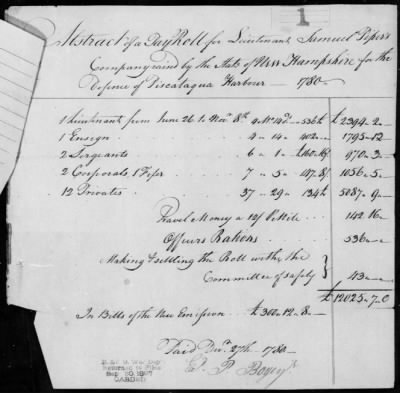 1
Abstract of a Pay Roll for Lieutenant Samuel Piper's
Company raised by the State of New Hampshire for the
Defence of Piscataqua Harbour — 1780 —
1 Lieutenant from June 26 to Novr 8th 4 Mo 14 Ds 536 £ 2394.2
1 Ensign 4 14 402 1795.12
2 Sergeants 6 1 970.3
2 Corporals 1 Fifer 7 5 1056.5
12 Privates 37 29 134 5087.9
Travel Money a 12/ P Mile 142.16
Officers Rations 536
Making & settling the Roll with the
Committee of Safety } 43
£ 12025.7.0
In Bills of the New Emission £300.12.8
Paid Decr 27th 1780
Returned to Files
Sep 20 1907
CARDED